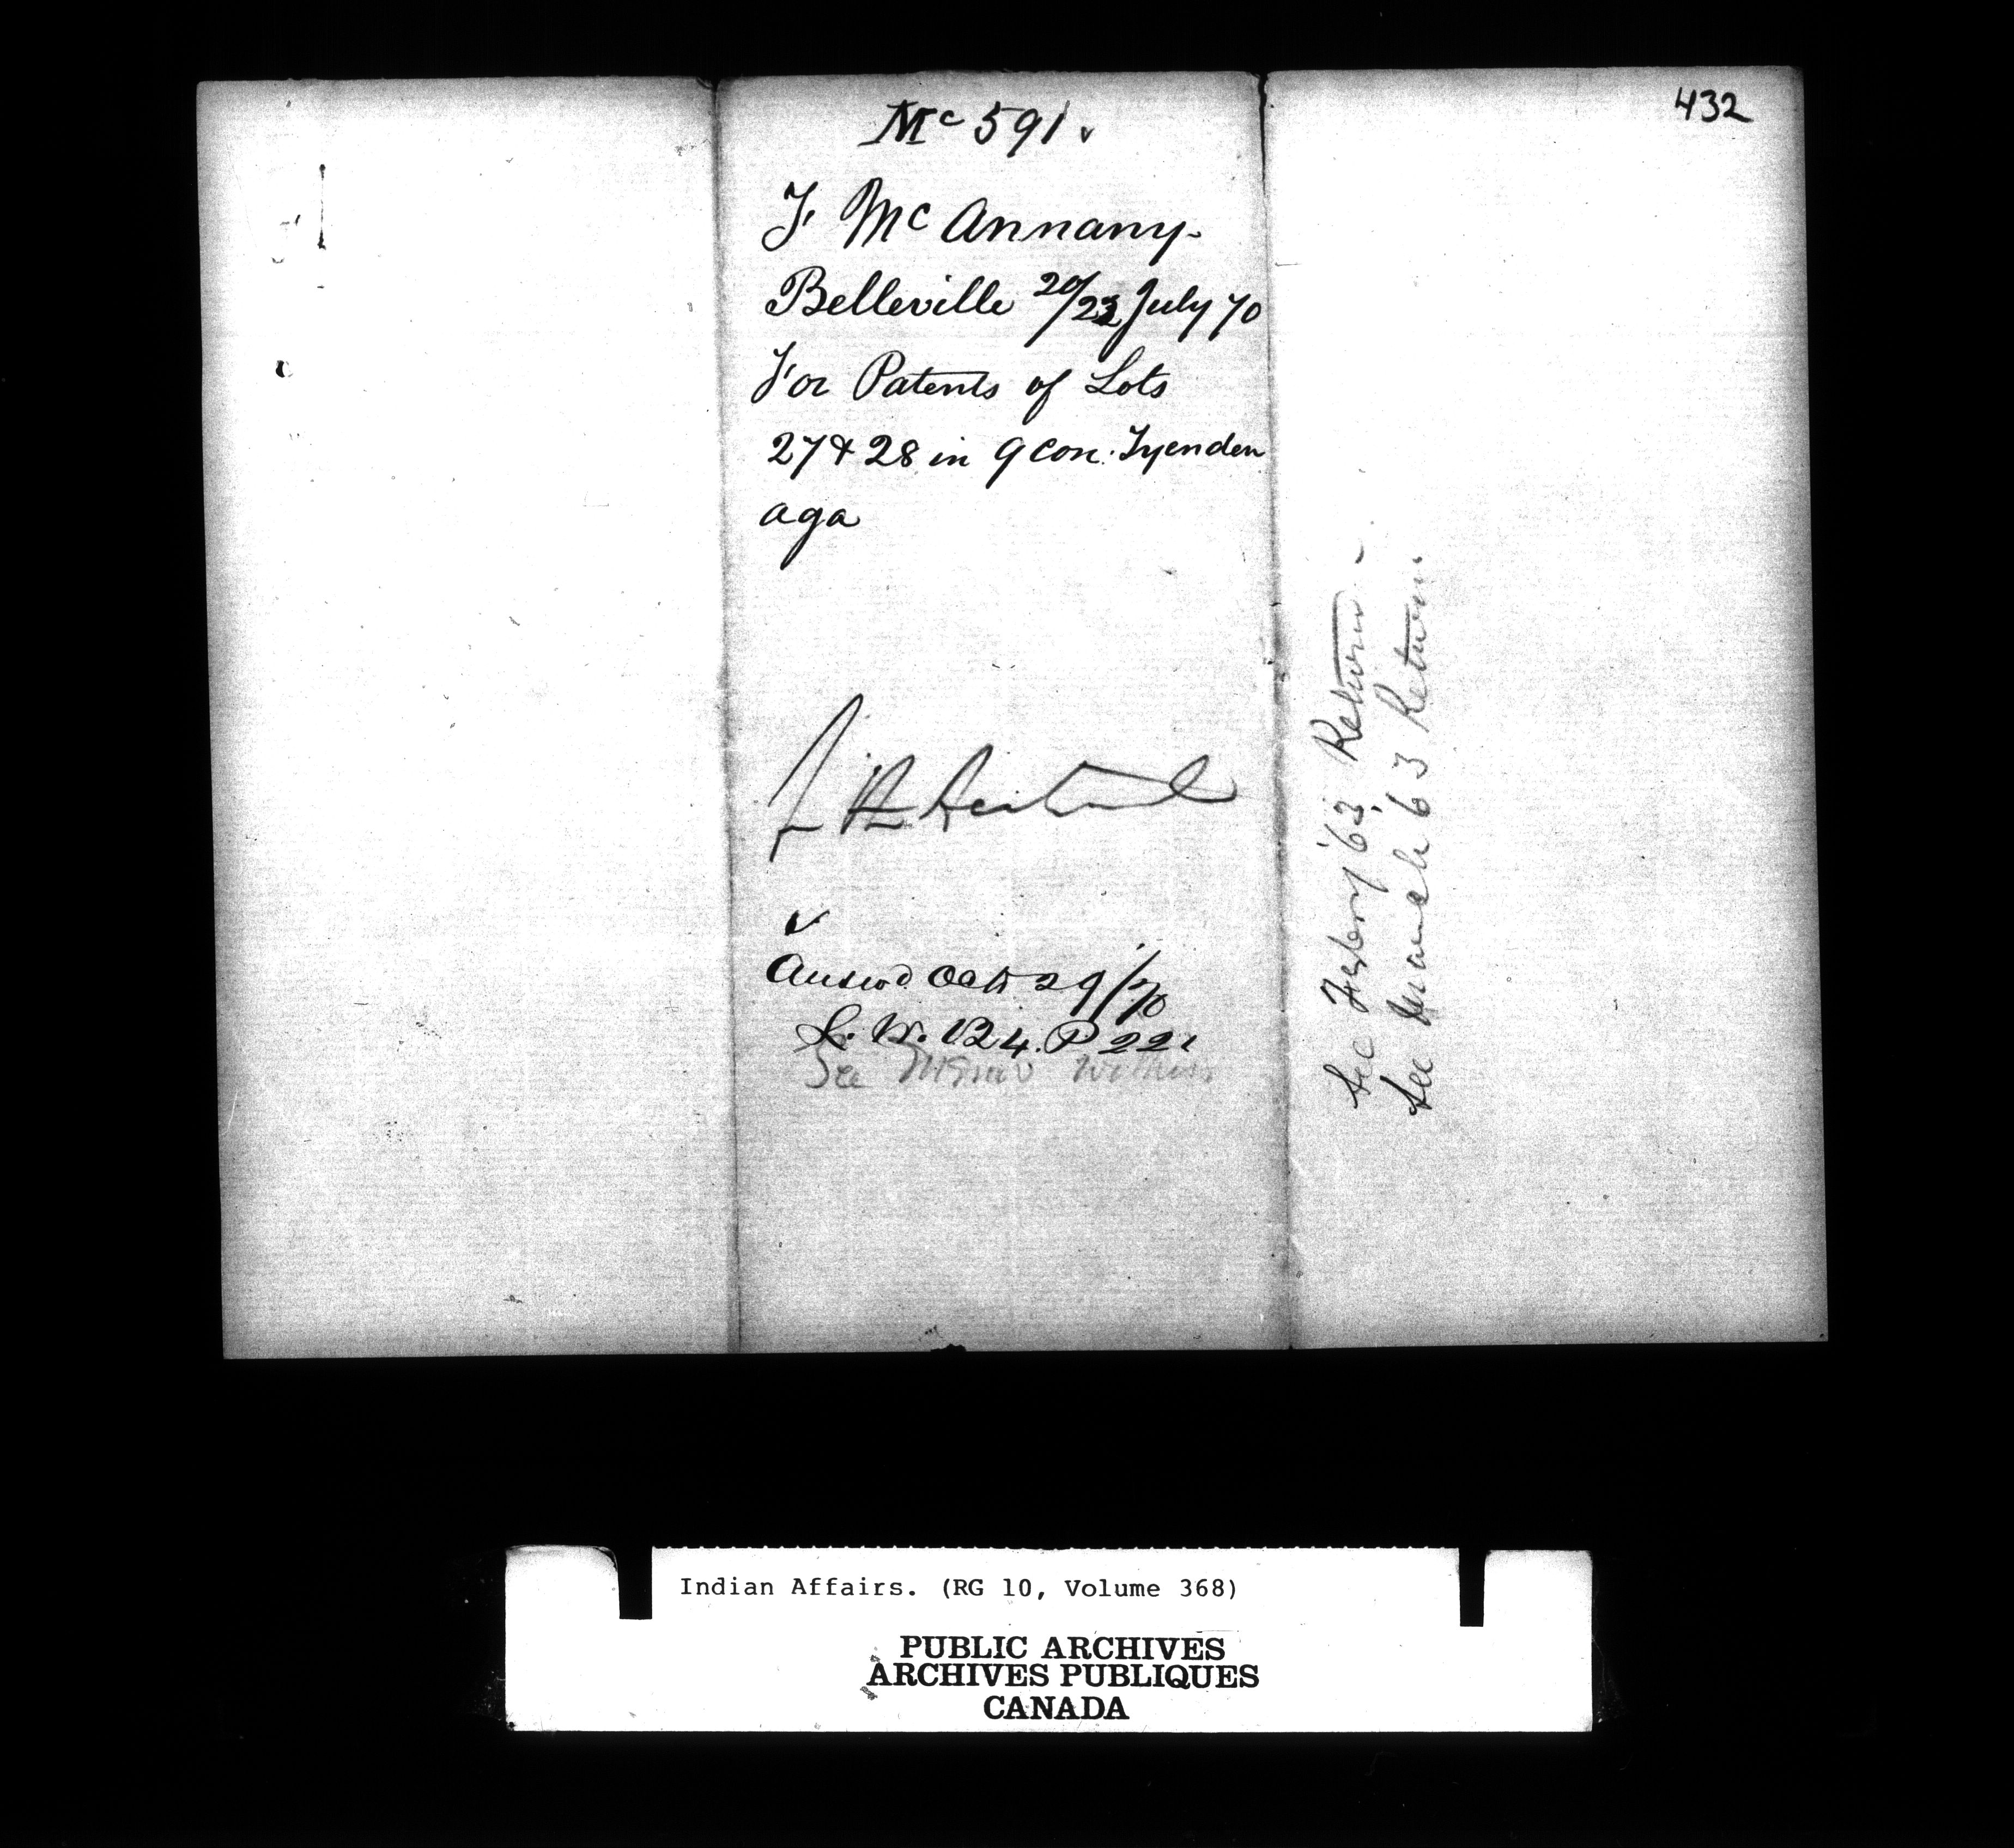 432
Mc 591.
F. McAnnany-
Belleville 20/23 July 70
For Patents of Lots
27 & 28 in 9 con. Tyenden
aga
Answd Oct 29/70
L. W. B 4. P 221
See Memo within
See Febry '63. Return -
See March 63 Return
Indian Affairs. (RG 10, Volume 368)
PUBLIC ARCHIVES
ARCHIVES PUBLIQUES
CANADA